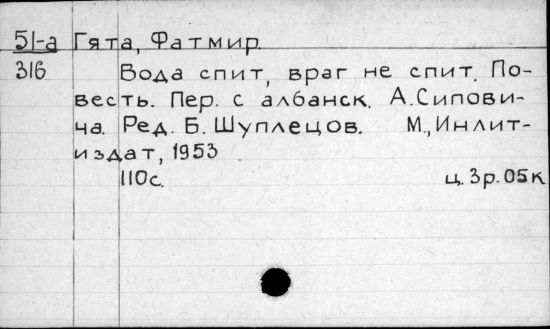 51-а Гята, Фатмир.
316 Вода спит, враг не спит. По-
весть. Пер. с албанск. А.Сипови-
ча. Ред. Б. Шуплецов. М., Инлит-
издат, 1953
110с. ц. 3р. 05к